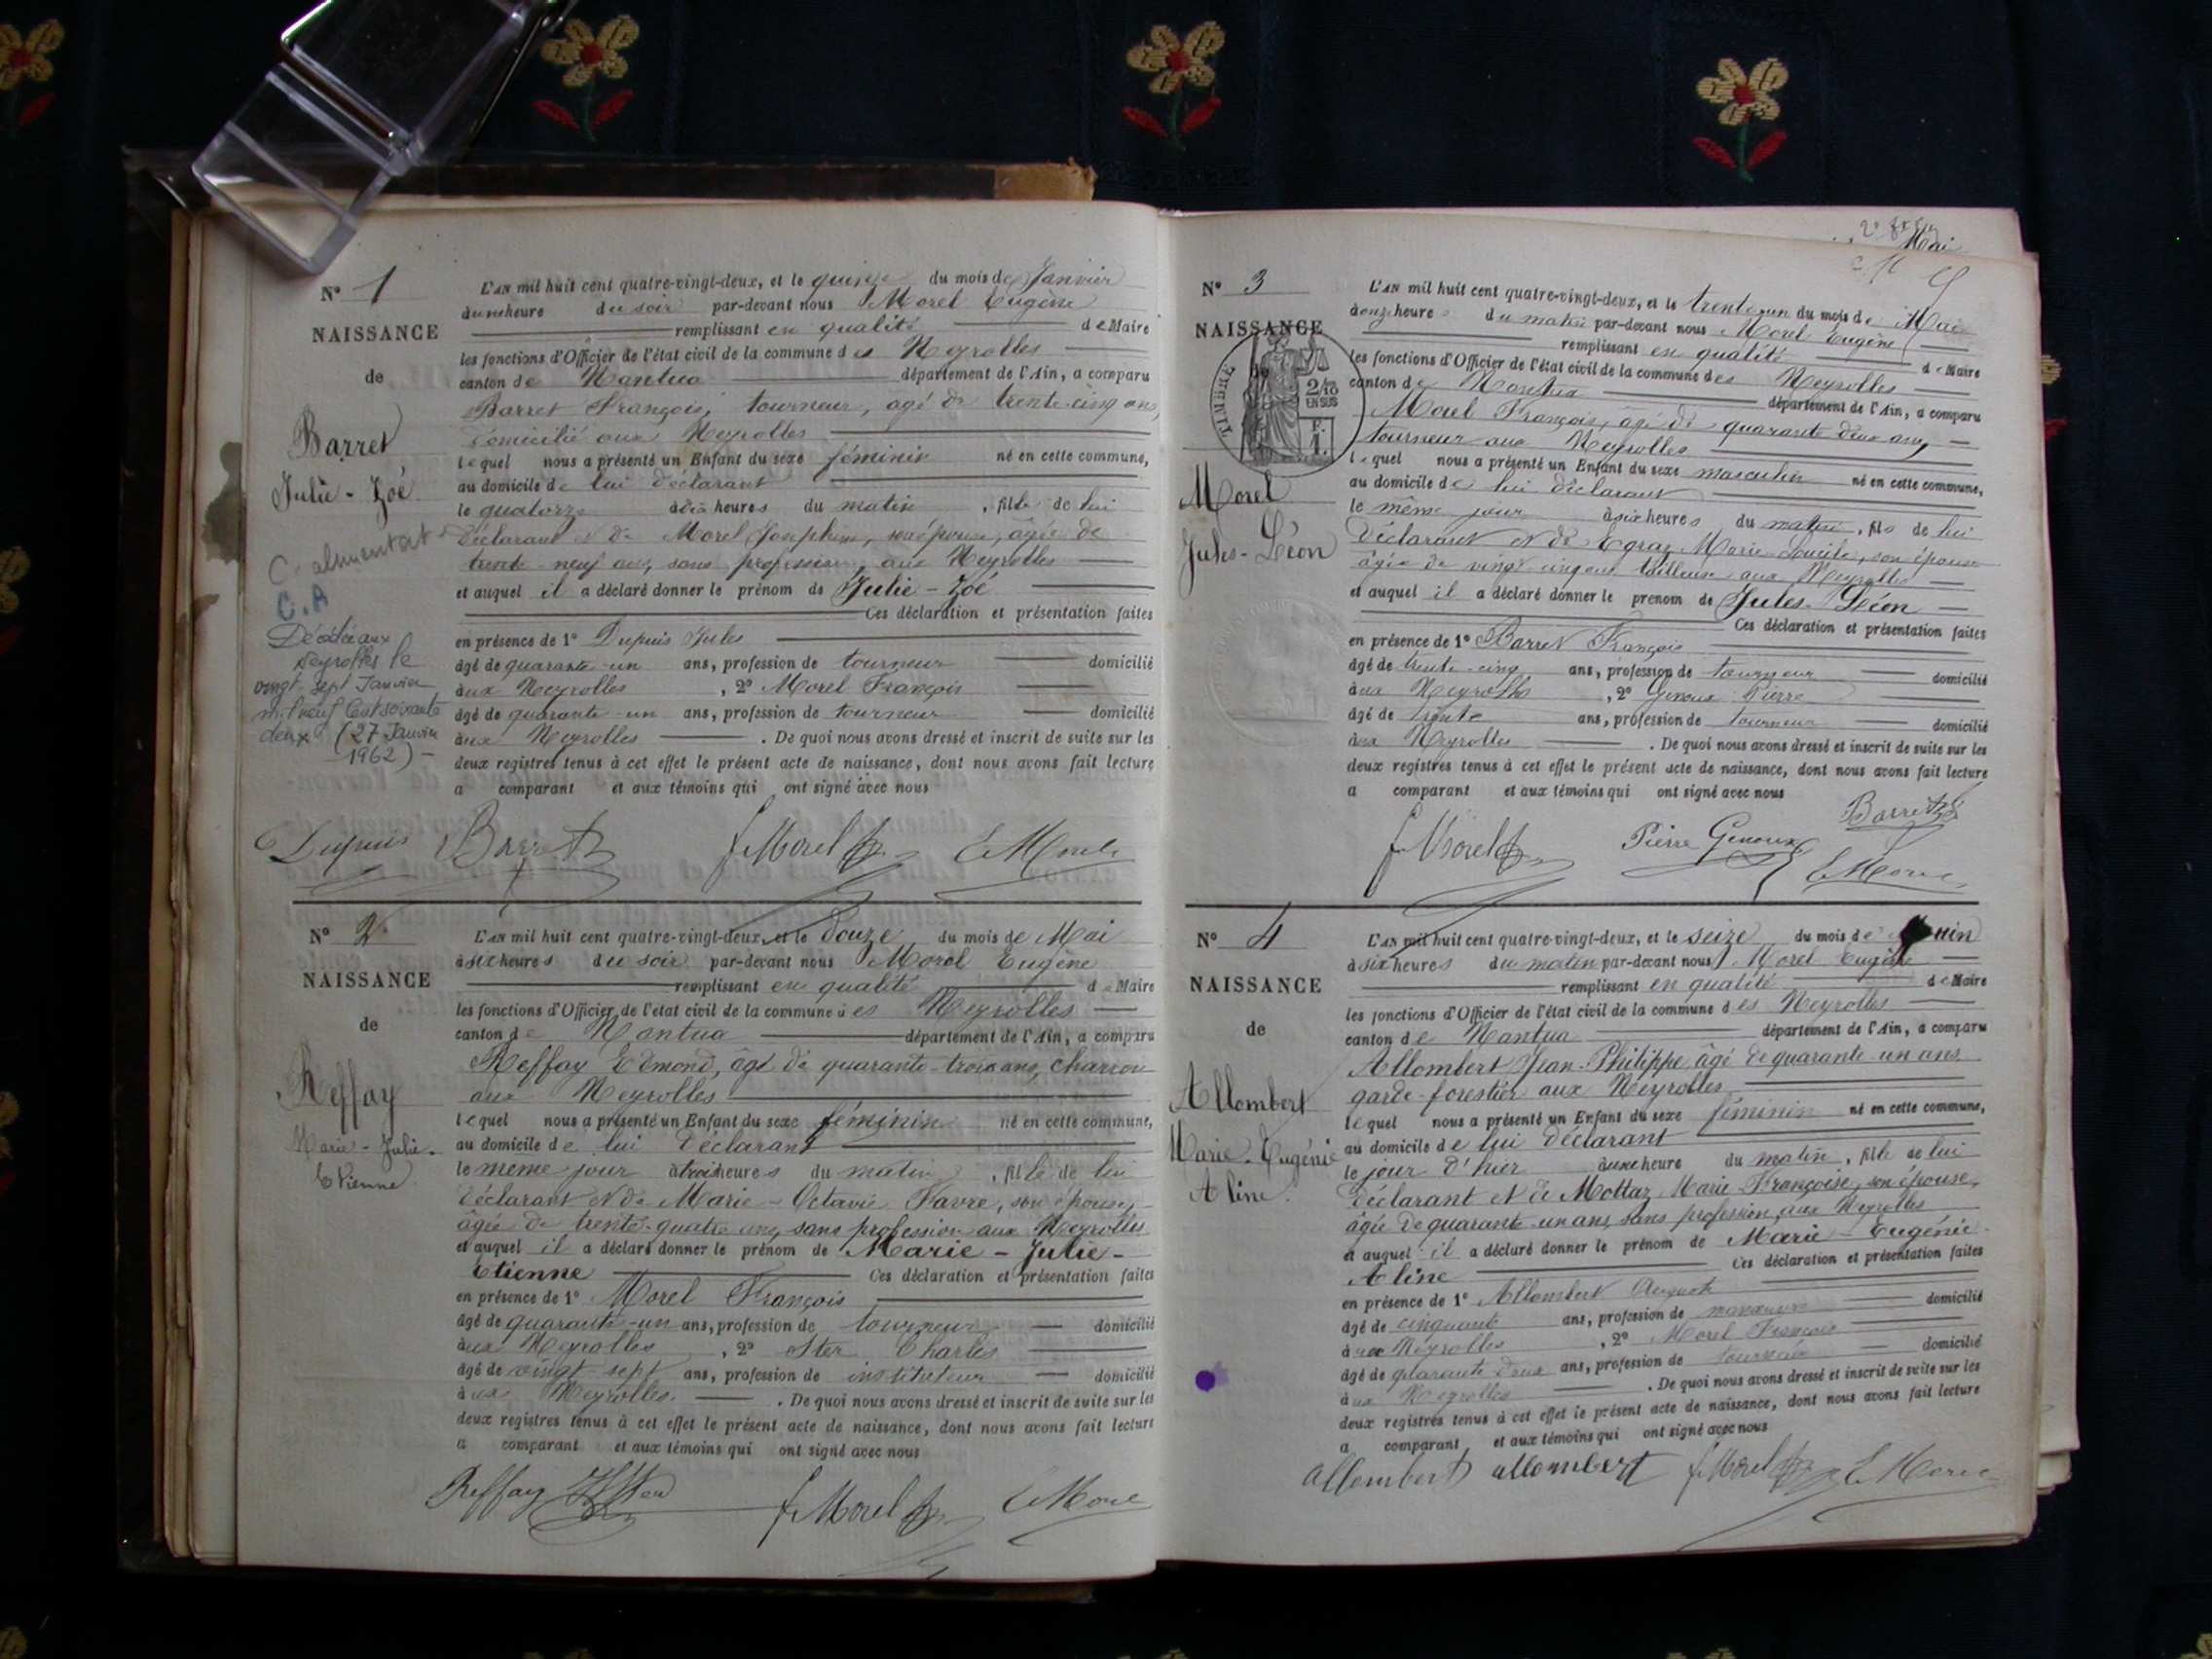 N° 1
NAISSANCE
de
Barret
Julie - Zoé
C. alimentat
C.A
Décédée aux
Neyrolles le
vingt-sept Janvier
mil neuf Cent soixante
deux (27 Janvier
1962) -
L'AN mil huit cent quatre-vingt-deux, et le quinze du mois de Janvier
à une heure du soir par-devant nous Morel Eugène
remplissant en qualité de Maire
les fonctions d'Officier de l'état civil de la commune des Neyrolles
canton de Nantua département de l'Ain, a comparu
Barret François, tourneur, âgé de trente-cinq ans,
domicilié aux Neyrolles
lequel nous a présenté un Enfant du sexe féminin né en cette commune,
au domicile de lui déclarant
le quatorze à dix heures du matin, fille de lui
déclarant et de Morel Josephine, son épouse, âgée de
trente neuf ans, sans profession, aux Neyrolles
et auquel il a déclaré donner le prénom de Julie - Zoé
Ces déclaration et présentation faites
en présence de 1° Dupuis Jules
âgé de quarante-un ans, profession de tourneur domicilié
aux Neyrolles, 2° Morel François
âgé de quarante-un ans, profession de tourneur domicilié
aux Neyrolles. De quoi nous avons dressé et inscrit de suite sur les
deux registres tenus à cet effet le présent acte de naissance, dont nous avons fait lecture
a comparant et aux témoins qui ont signé avec nous
Dupuis Barret f. Morel E. Morel
N° 2
NAISSANCE
de
Reffay
Marie - Julie -
Etienne
L'AN mil huit cent quatre-vingt-deux, et le douze du mois de Mai
à six heures du soir par-devant nous Morel Eugène
remplissant en qualité de Maire
les fonctions d'Officier de l'état civil de la commune des Neyrolles
canton de Nantua département de l'Ain, a comparu
Reffay Edmond, âgé de quarante-trois ans, charron
aux Neyrolles
lequel nous a présenté un Enfant du sexe féminin né en cette commune,
au domicile de lui déclarant
le même jour à trois heures du matin, fille de lui
déclarant et de Marie - Octavie Favre, son épouse,
âgée de trente-quatre ans, sans profession aux Neyrolles
et auquel il a déclaré donner le prénom de Marie - Julie -
Etienne Ces déclaration et présentation faites
en présence de 1° Morel François
âgé de quarante-un ans, profession de tourneur domicilié
aux Neyrolles, 2° Ster Charles
âgé de vingt sept ans, profession de instituteur domicilié
aux Neyrolles. De quoi nous avons dressé et inscrit de suite sur les
deux registres tenus à cet effet le présent acte de naissance, dont nous avons fait lecture
a comparant et aux témoins qui ont signé avec nous
Reffay Ster f. Morel E. Morel
Mai
N° 3
NAISSANCE
TIMBRE
2/10
EN SUS
F.
1.
Morel
Jules - Léon
L'AN mil huit cent quatre-vingt-deux, et le trente-un du mois de Mai
à onze heures du matin par-devant nous Morel Eugène
remplissant en qualité de Maire
les fonctions d'Officier de l'état civil de la commune des Neyrolles
canton de Nantua département de l'Ain, a comparu
Morel François, âgé de quarante deux ans,
tourneur aux Neyrolles
lequel nous a présenté un Enfant du sexe masculin né en cette commune,
au domicile de lui déclarant
le même jour à six heures du matin, fils de lui
déclarant et de Egraz Marie son épouse
âgée de vingt cinq ans tailleuse aux Neyrolles
et auquel il a déclaré donner le prénom de Jules - Léon
Ces déclaration et présentation faites
en présence de 1° Barret François
âgé de trente-cinq ans, profession de tourneur domicilié
aux Neyrolles, 2° Genoux Pierre
âgé de trente ans, profession de tourneur domicilié
aux Neyrolles. De quoi nous avons dressé et inscrit de suite sur les
deux registres tenus à cet effet le présent acte de naissance, dont nous avons fait lecture
a comparant et aux témoins qui ont signé avec nous
Barret
f. Morel Pierre Genoux E. Morel
N° 4
NAISSANCE
de
Allombert
Marie - Eugénie
Aline.
L'AN mil huit cent quatre-vingt-deux, et le seize du mois de Juin
à six heures du matin par-devant nous Morel Eugène
remplissant en qualité de Maire
les fonctions d'Officier de l'état civil de la commune des Neyrolles
canton de Nantua département de l'Ain, a comparu
Allombert Jean-Philippe âgé de quarante-un ans
garde-forestier aux Neyrolles
lequel nous a présenté un Enfant du sexe féminin né en cette commune,
au domicile de lui déclarant
le jour d'hier à une heure du matin, fille de lui
déclarant et de Mottaz Marie-Françoise, son épouse,
âgée de quarante-un ans, sans profession, aux Neyrolles
et auquel il a déclaré donner le prénom de Marie - Eugénie -
Aline Ces déclaration et présentation faites
en présence de 1° Allombert August
âgé de cinquante ans, profession de domicilié
aux Neyrolles, 2° Morel François
âgé de quarante deux ans, profession de tourneur domicilié
aux Neyrolles. De quoi nous avons dressé et inscrit de suite sur les
deux registres tenus à cet effet le présent acte de naissance, dont nous avons fait lecture
a comparant et aux témoins qui ont signé avec nous
allombert allombert f. Morel E. Morel